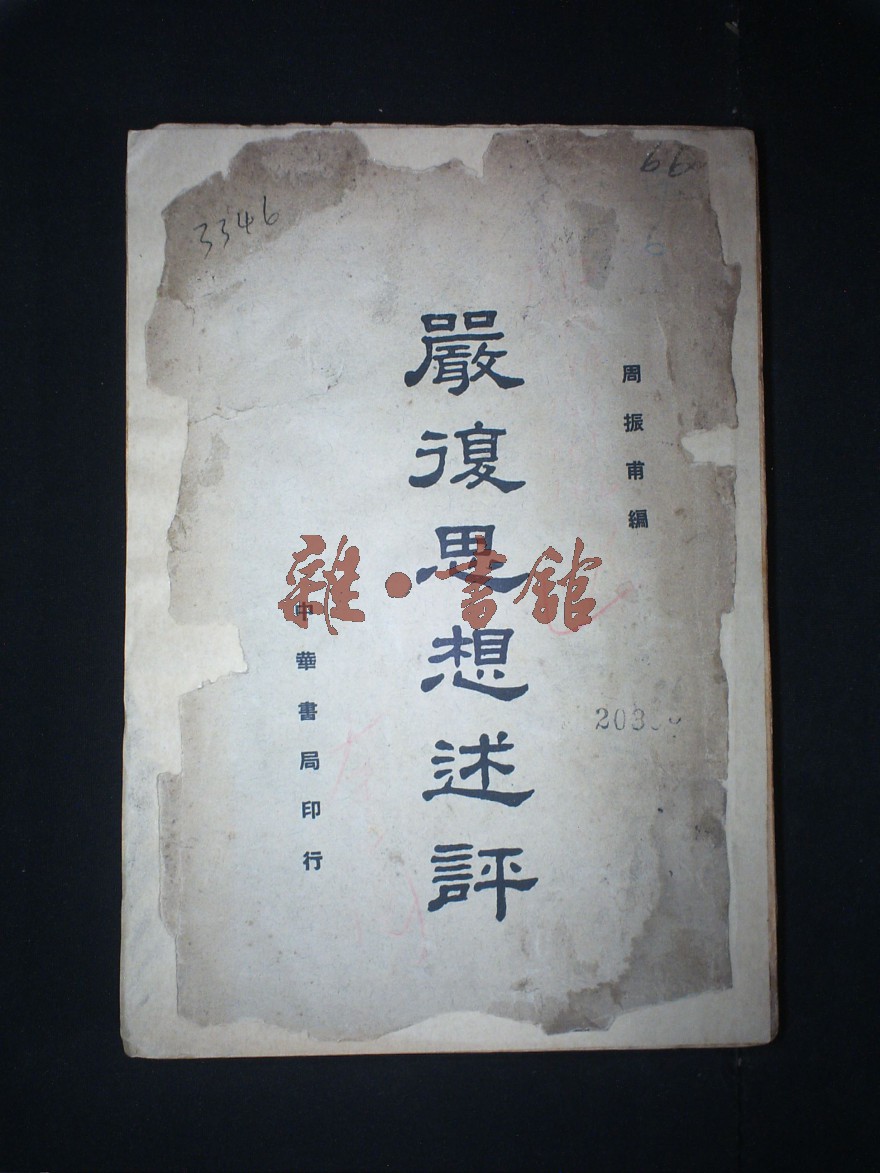 3346
66
6
周振甫編
嚴復思想述評
雜·書館
中華書局印行
203